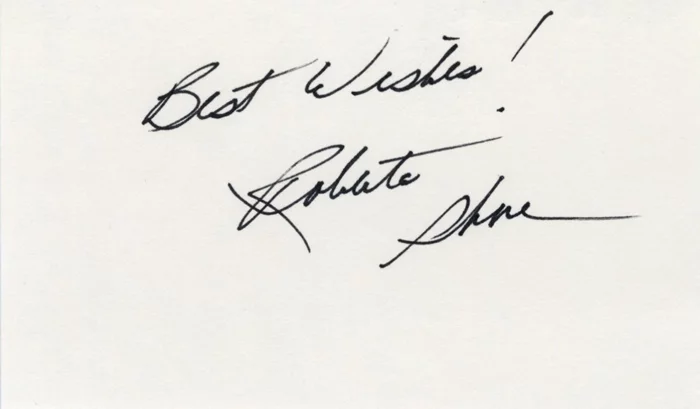 Best Wishes!
Roberta
Shore